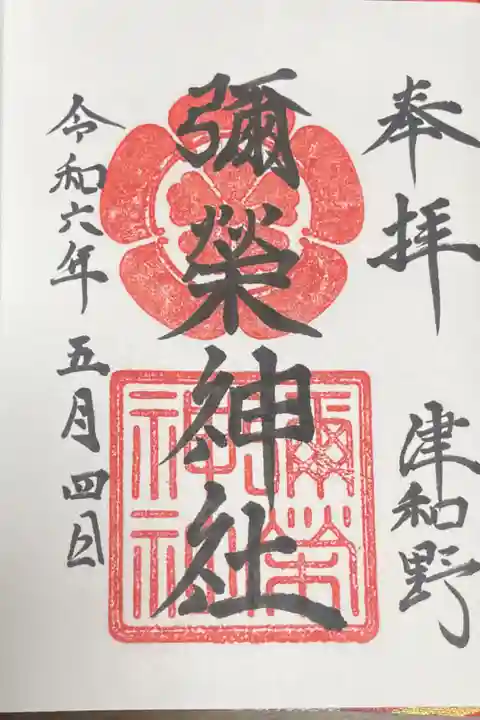 奉拝
津和野
彌榮神社
彌榮
神社
令和六年五月四日